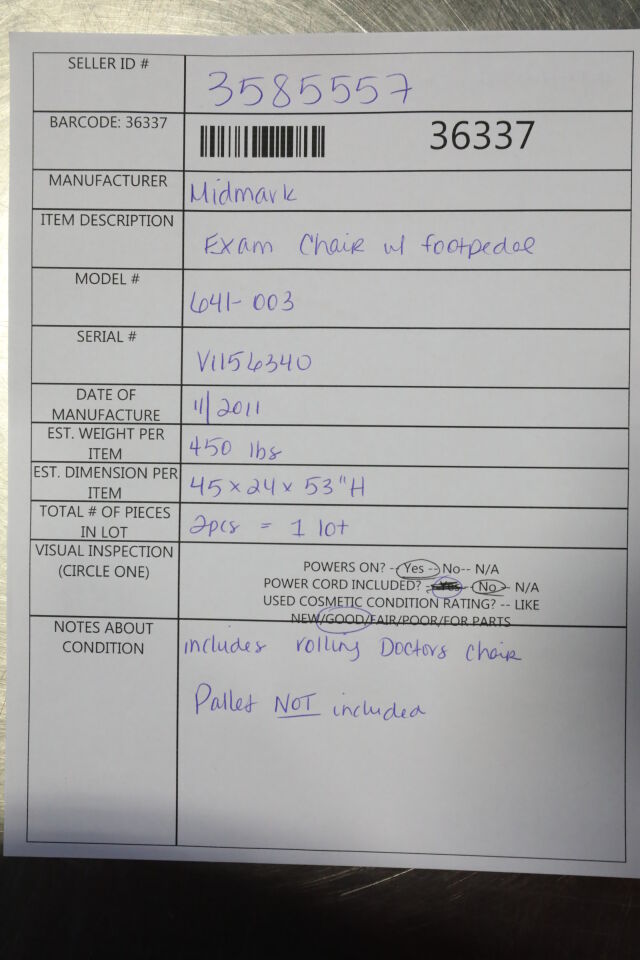 SELLER ID #
3585557
BARCODE: 36337
36337
MANUFACTURER
Midmark
ITEM DESCRIPTION
Exam Chair w/ footpedal
MODEL #
641-003
SERIAL #
V1156340
DATE OF
MANUFACTURE
11/2011
EST. WEIGHT PER
ITEM
450 lbs
EST. DIMENSION PER
ITEM
45 x 24 x 53"H
TOTAL # OF PIECES
IN LOT
2pcs = 1 lot
VISUAL INSPECTION
(CIRCLE ONE)
POWERS ON? -- Yes -- No-- N/A
POWER CORD INCLUDED? -- Yes -- No -- N/A
USED COSMETIC CONDITION RATING? -- LIKE
NEW/GOOD/FAIR/POOR/FOR PARTS
NOTES ABOUT
CONDITION
includes rolling Doctors chair
Pallet NOT included